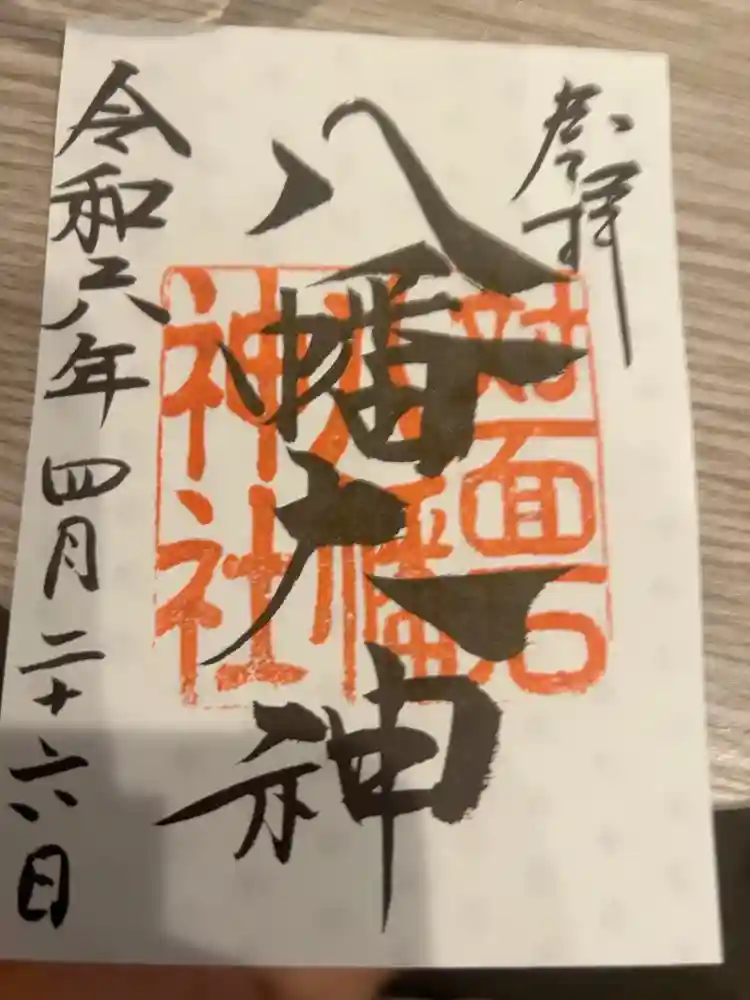 奉拝
八幡大神
対面石
八幡
神社
令和六年四月二十六日